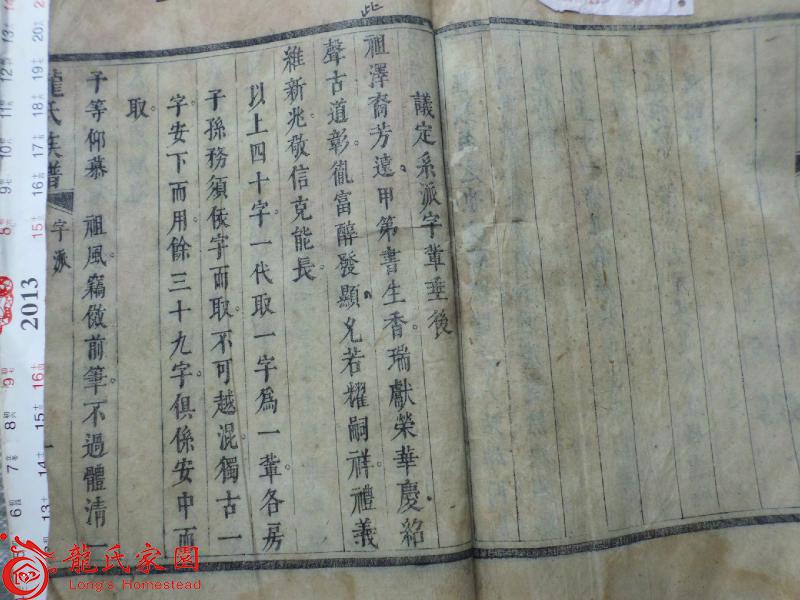 議定系派字輩垂後
祖澤裔芳遠甲第書生香瑞獻榮華慶紹
聲古道彰胤富醇發顯允若耀嗣祥禮義
維新兆敬信克能長
以上四十字一代取一字為一輩各房
子孫務須依字而取不可越混獨古一
字安下而用餘三十九字俱係安中而
取
予等仰慕 祖風竊倣前筆不過體清一
龍氏族譜 字派
2013
龍氏家園
Long's Homestead